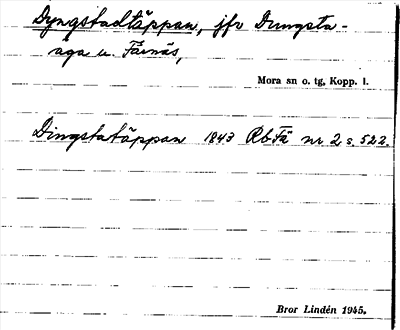 Dyngstadtäppan, jfr Dungsta-
åga u. Färnäs,
Mora sn o. tg, Kopp. l.
Dingstatäppan 1843 RbFä nr 2 s. 522.
Bror Lindén 1945.